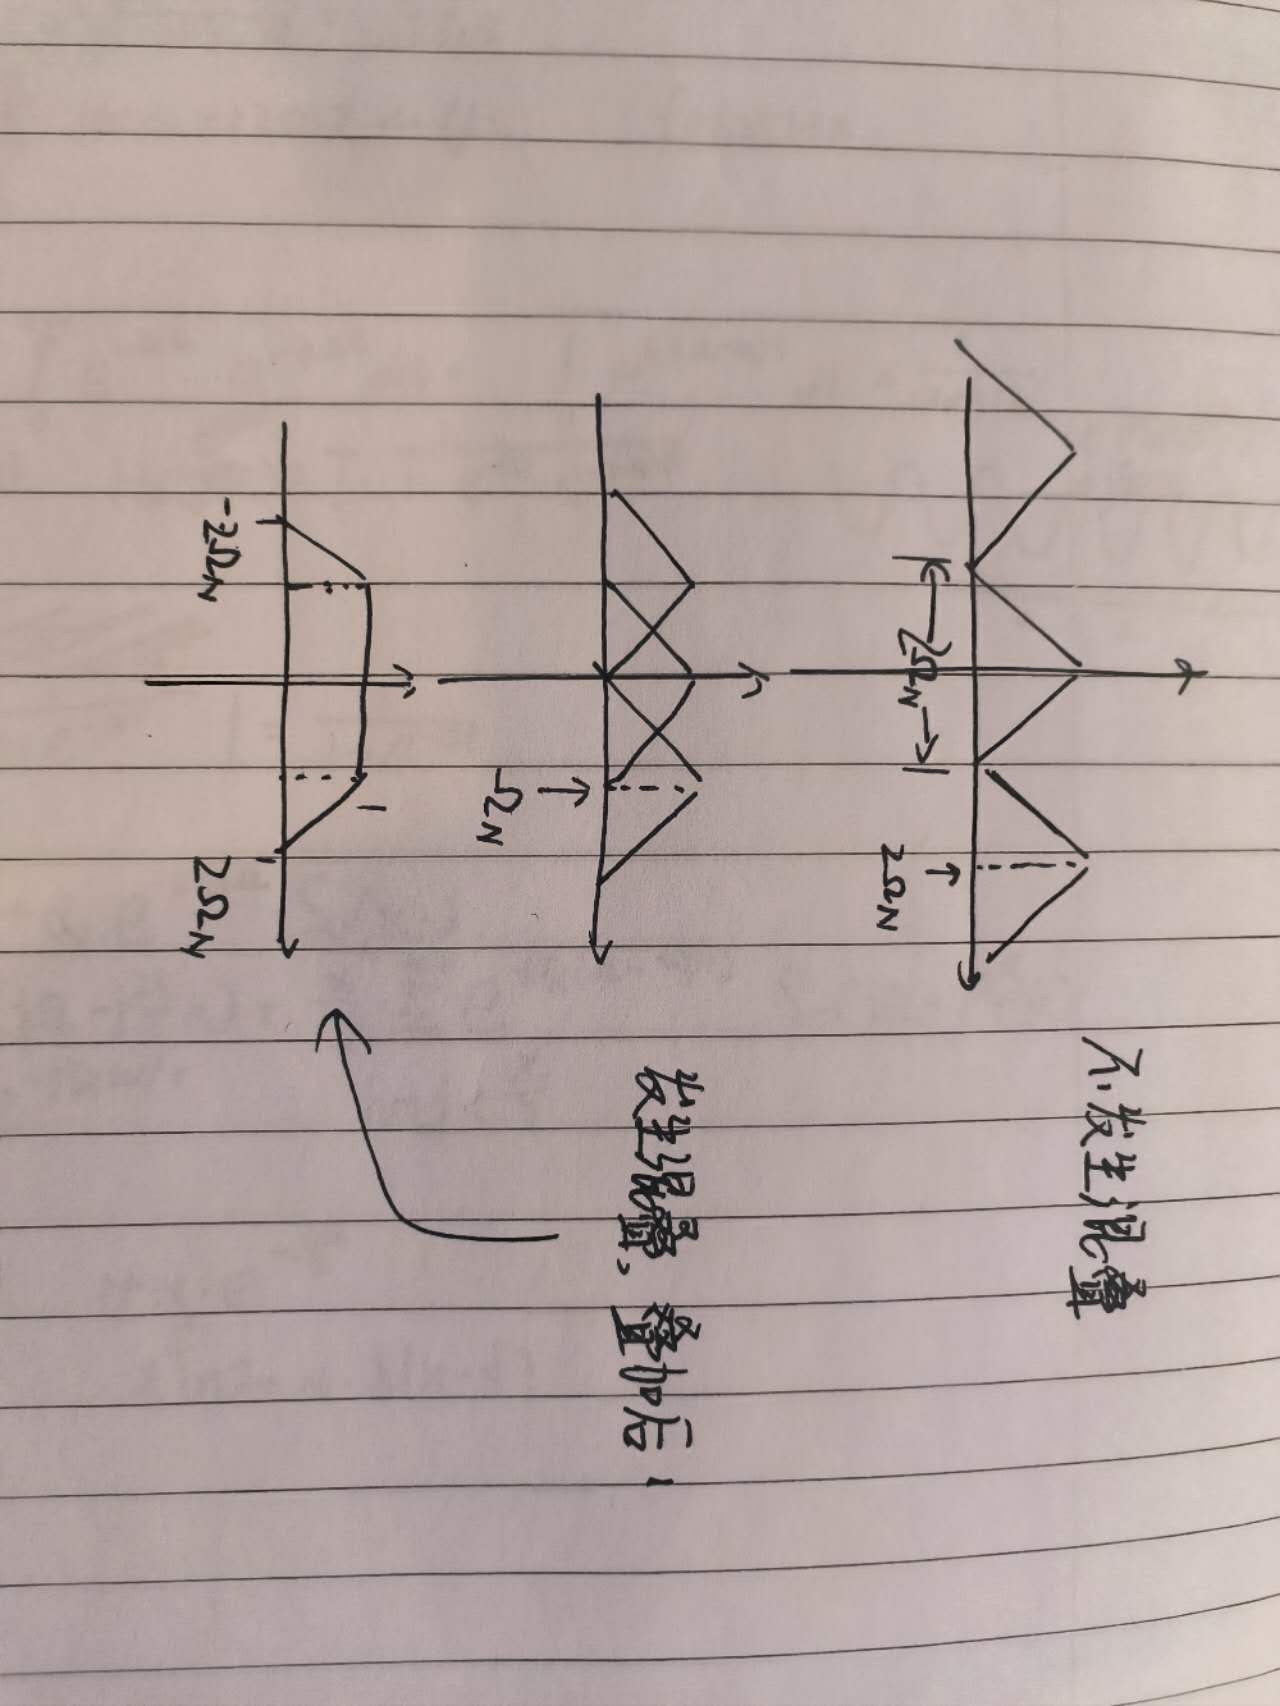 不发生混叠
2Ω_N
2Ω_N
发生混叠. 叠加后:
Ω_N
-2Ω_N
2Ω_N